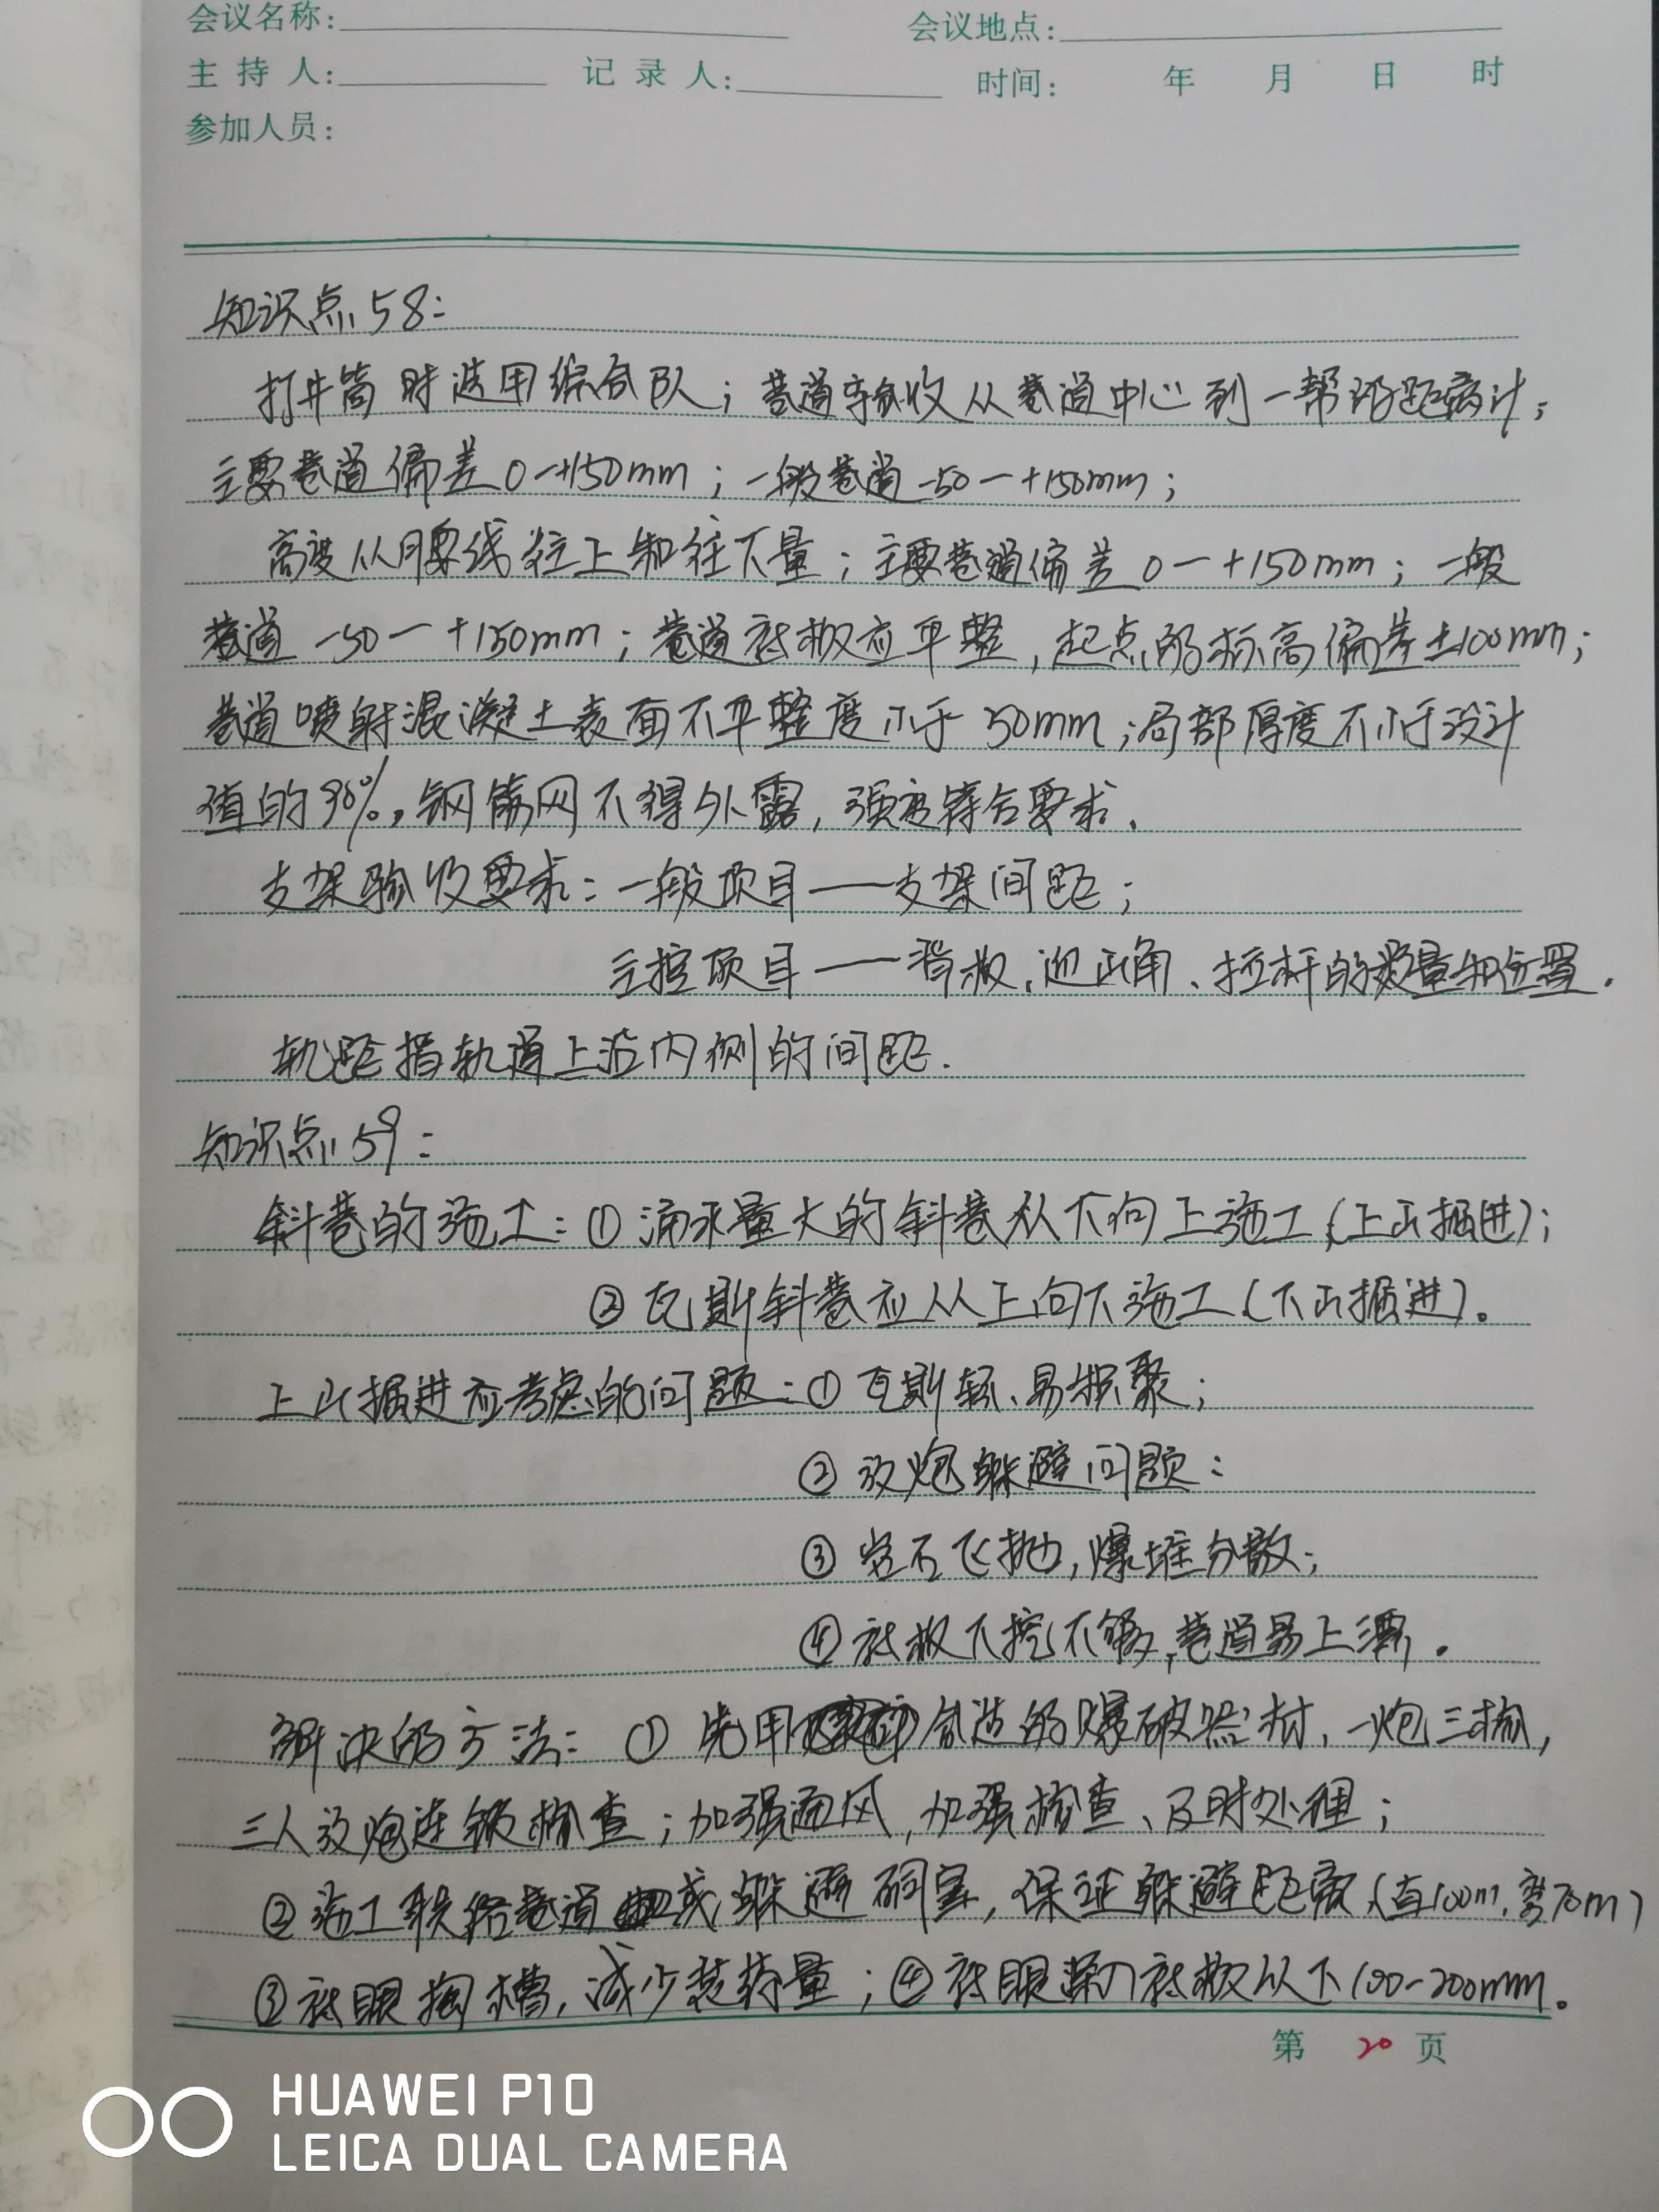 会议名称: 会议地点:
主 持 人: 记 录 人: 时间: 年 月 日 时
参加人员:
知识点58:
打井筒时选用综合队；巷道宽验收从巷道中心到一帮的距离计；
主要巷道偏差0—+150mm；一般巷道-50—+150mm；
高度从腰线往上和往下量；主要巷道偏差0—+150mm；一般
巷道-50—+150mm；巷道底板应平整，起点的标高偏差±100mm；
巷道喷射混凝土表面不平整度小于50mm；局部厚度不小于设计
值的90%，钢筋网不得外露，强度符合要求.
支架验收要求：一般项目——支架间距；
主控项目——背板、迎山角、拉杆的数量和位置.
轨距指轨道上沿内侧的间距.
知识点59：
斜巷的施工：①涌水量大的斜巷从下向上施工（上山掘进）；
②瓦斯斜巷应从上向下施工（下山掘进）。
上山掘进应考虑的问题：①瓦斯轻、易积聚；
②放炮躲避问题：
③岩石飞抛，爆堆分散；
④底板下挖不够，巷道易上漂.
解决的方法：①先用合适的爆破器材，一炮三检，
三人放炮连锁检查；加强通风，加强检查、及时处理；
②施工联络巷道或躲避硐室，保证躲避距离（直100m，弯70m）
③底眼掏槽，减少装药量；④底眼深入底板以下100-200mm。
第 20 页
HUAWEI P10
LEICA DUAL CAMERA